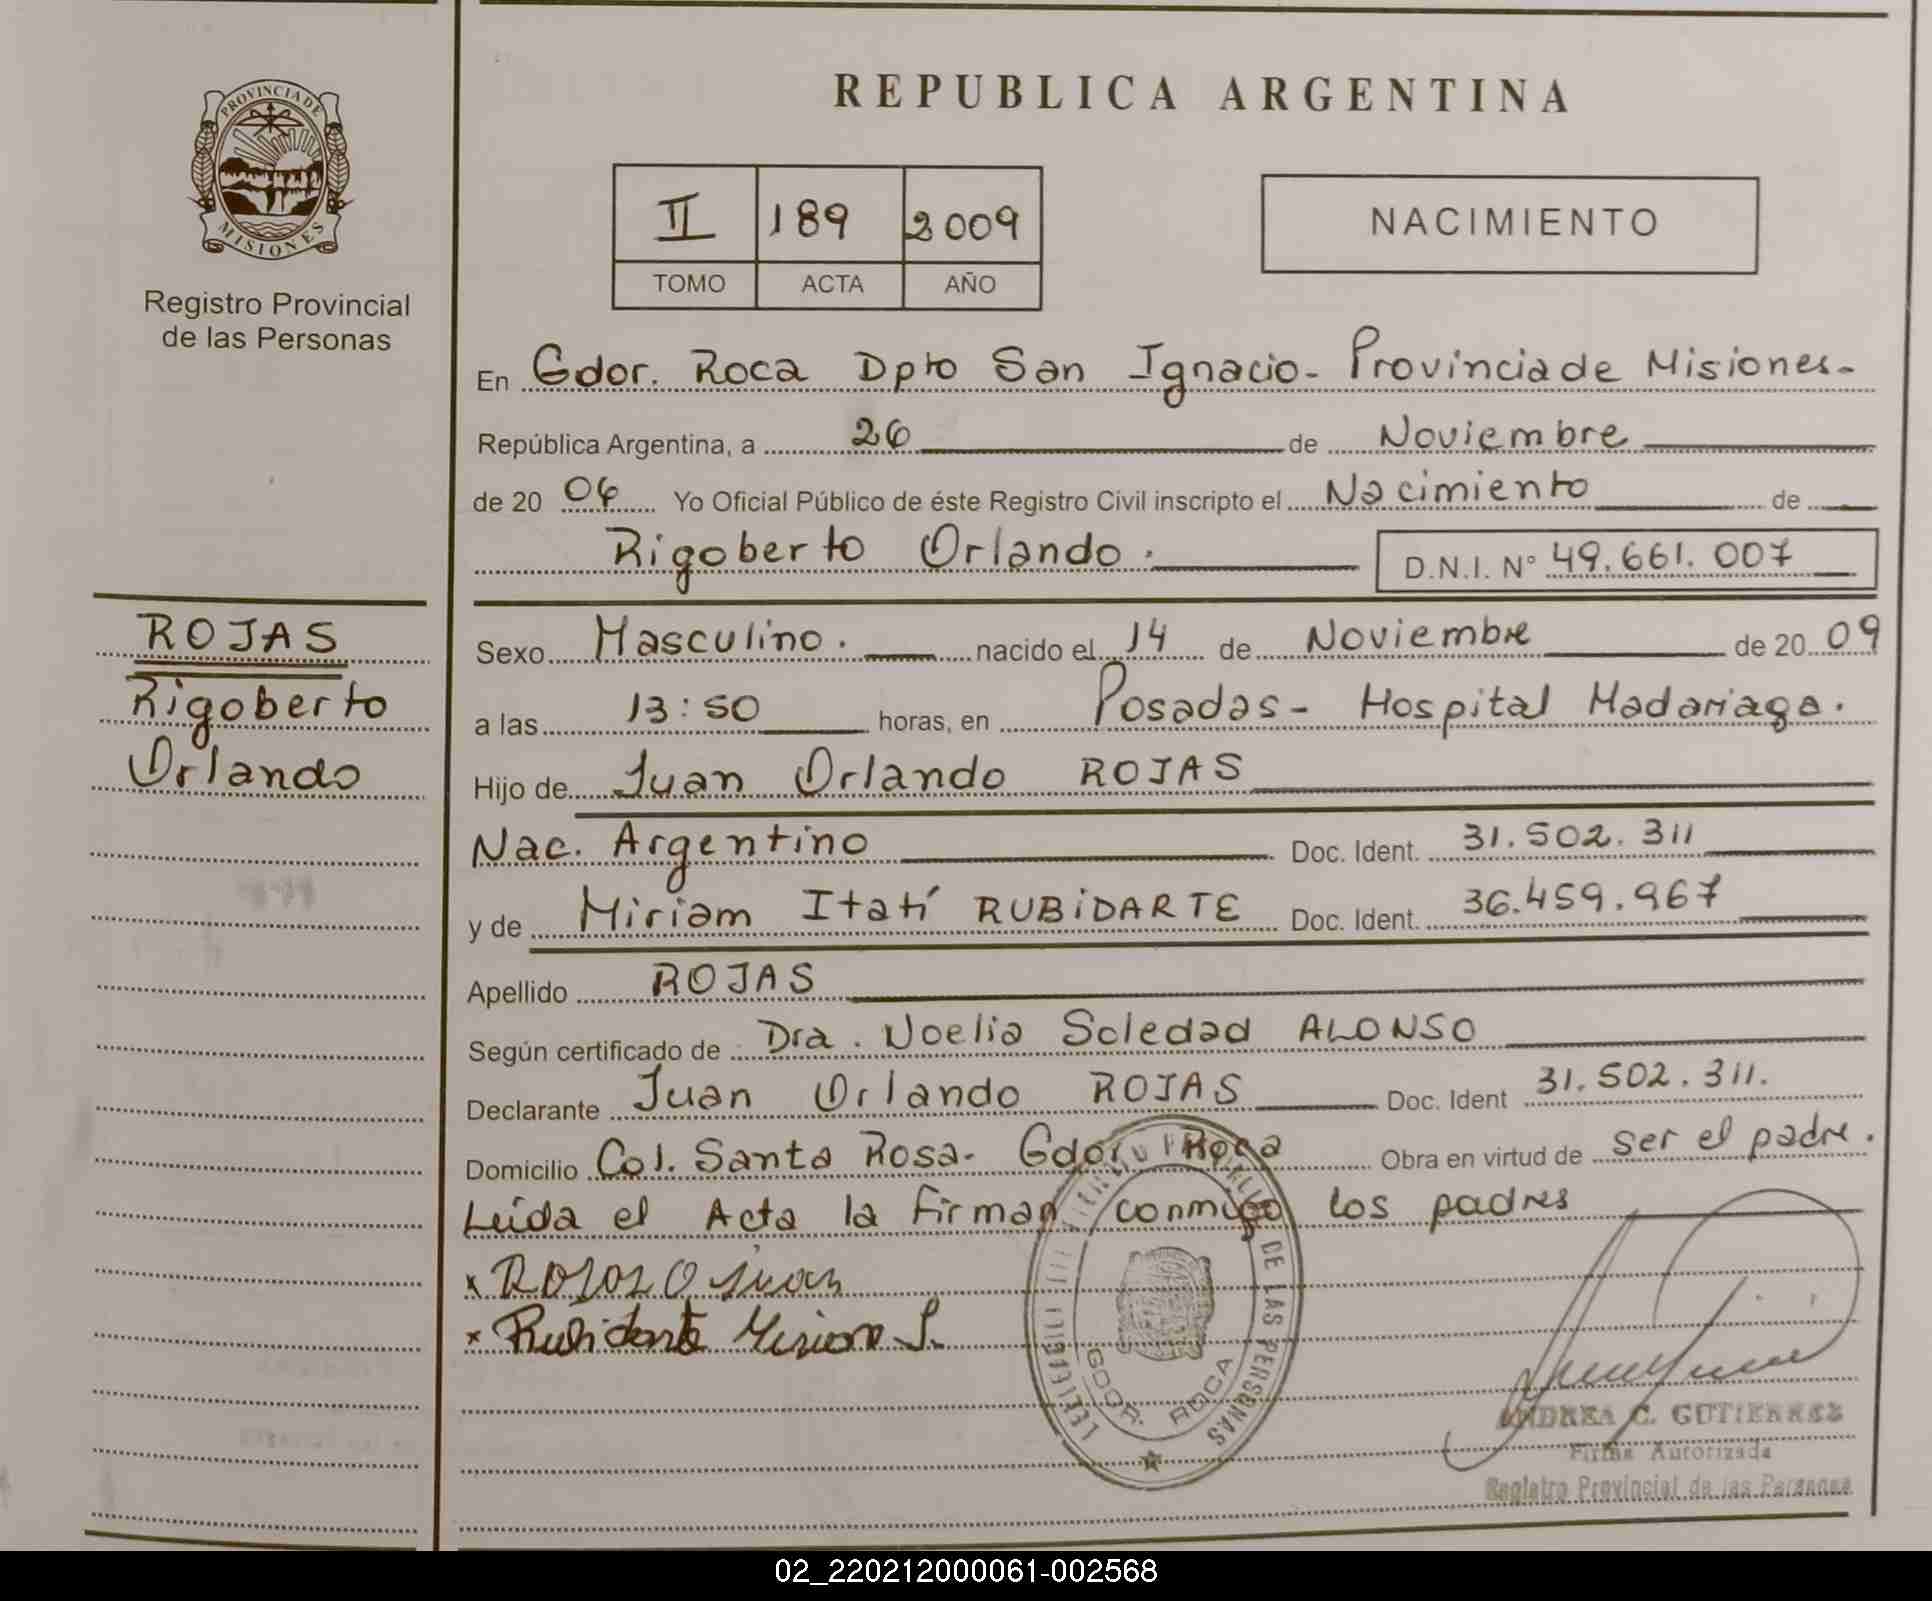 PROVINCIA DE
MISIONES
Registro Provincial
de las Personas
REPUBLICA ARGENTINA
II 189 2009
TOMO ACTA AÑO
NACIMIENTO
En Gdor. Roca Dpto San Ignacio - Provincia de Misiones -
República Argentina, a 26 de Noviembre
de 20 Yo Oficial Público de éste Registro Civil inscripto el Nacimiento de
Rigoberto Orlando. D.N.I. N° 49.661.007
ROJAS
Rigoberto
Orlando
Sexo Masculino. nacido el 14 de Noviembre de 20 09
a las 13:50 horas, en Posadas - Hospital Madariaga.
Hijo de Juan Orlando ROJAS
Nac. Argentino Doc. Ident. 31.502.311
y de Miriam Itatí RUBIDARTE Doc. Ident. 36.459.967
Apellido ROJAS
Según certificado de Dra. Noelia Soledad ALONSO
Declarante Juan Orlando ROJAS Doc. Ident 31.502.311.
Domicilio Col. Santa Rosa - Gdor Roca Obra en virtud de ser el padre.
Leída el Acta la firman conmigo los padres
x Rojas O Juan
x Rubidarte Miriam I.
DE LAS PERSONAS
GDOR. ROCA
ANDREA C. GUTIERREZ
Firma Autorizada
Registro Provincial de las Personas
02_220212000061-002568